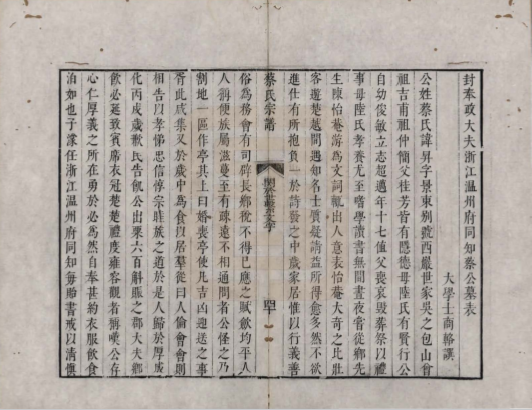 封奉政大夫浙江溫州府同知蔡公墓表
大學士商輅譔
公姓蔡氏諱昇字景東別號西巖世家吳之包山曾
祖吉甫祖仲簡父桂芳皆有隱德母陸氏有賢行公
自幼俊敏立志超邁年十七値父喪哀毀葬祭以禮
事母陸氏孝養尤至嗜學讀書無間晝夜嘗從鄉先
生陳怡菴游爲文詞輒出人意表怡菴大奇之比壯
客遊楚越間遇知名士質疑請益所得愈多然不欲
進仕有所抱負一於詩發之中歲家居惟以行義善
蔡氏宗譜
俗爲務會有司碑長鄉稅不得已應之賦歛均平人
人稱便族屬滋蔓至有疎遠不相通問者公怪之乃
割地一區作亭其上曰婚喪亭使凡吉凶迎送之事
胥此咸集又於歲中爲食以居羣從曰人倫會會則
相告以孝悌忠信惇宗睦族之道於是人歸於厚成
化丙戌歲歉民告飢公出粟六百斛賑之郡大夫鄉
飲必延致賓席衣冠楚楚禮度雍容觀者稱嘆公存
心仁厚義之所在勇於必爲然自奉甚約衣服飲食
泊如也子濙任浙江溫州府同知每貽書戒以清愼